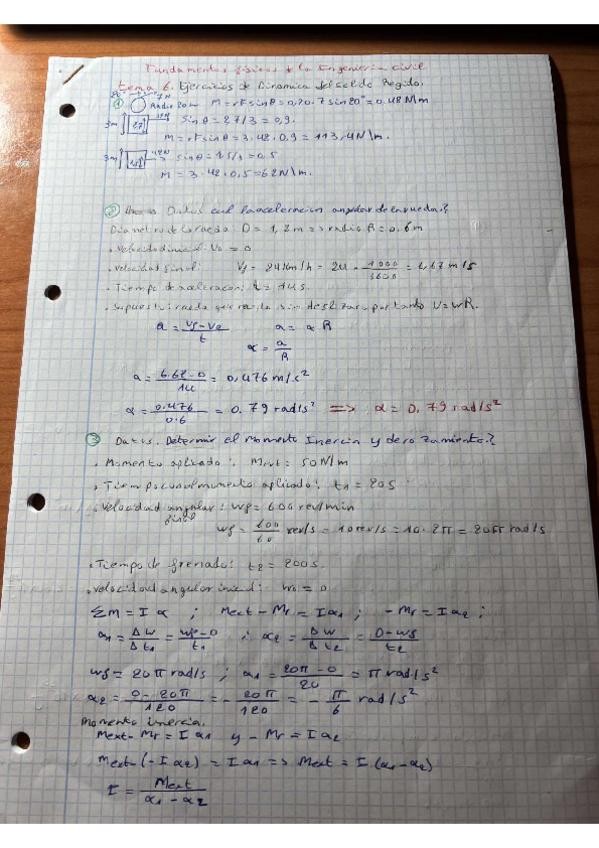 Fundamentos físicos de la Ingeniería civil
tema 6. Ejercicios de Dinamica del solido Rigido.
① 7N Radio 20cm M = rFsinθ = 0,20 · 7 sin20° = 0.48 N/m
3m 2,7 42N sinθ = 2.7/3 = 0,9.
M = rFsinθ = 3 · 42 · 0,9 = 113,4 N\m.
3m 1,5 42N sinθ = 1.5/3 = 0,5
M = 3 · 42 · 0,5 = 62 N\m.
② Datos cual la aceleracion angular de la rueda?
Diametro de la rueda D = 1,2m => radio R = 0.6m
• Velocidad inicial: V0 = 0
• velocidad final: Vf = 24 Km/h = 24 · 1000/3600 = 6,67 m/s
• Tiempo de aceleracion: t = 14s.
• Supuesto: rueda que rueda sin deslizar, por tanto V = wR.
a = vf - v0 / t a = α R
α = a / R
a = 6.67 - 0 / 14 = 0,476 m/s²
α = 0.476 / 0.6 = 0.79 rad/s² => α = 0,79 rad/s²
③ Datos. Determinar el momento Inercia y de rozamiento?
• Momento aplicado: Mext = 50 N/m
• Tiempo con el momento aplicado: t1 = 20s
• Velocidad angular final: wf = 600 rev/min
wf = 600/60 rev/s = 10 rev/s = 10 · 2π = 20π rad/s
• Tiempo de frenado: t2 = 200s.
• velocidad angular inicial: w0 = 0
ΣM = I α ; Mext - Mr = Iα1 ; - Mr = Iα2 ;
α1 = Δw/Δt1 = wf - 0/t1 ; α2 = Δw/Δt2 = 0 - wf/t2
wf = 20π rad/s ; α1 = 20π - 0 / 20 = π rad/s²
α2 = 0 - 20π / 120 = - 20π / 120 = - π/6 rad/s²
Momento inercia.
Mext - Mr = I α1 y - Mr = I α2
Mext - (-I α2) = I α1 => Mext = I (α1 - α2)
I = Mext / α1 - α2